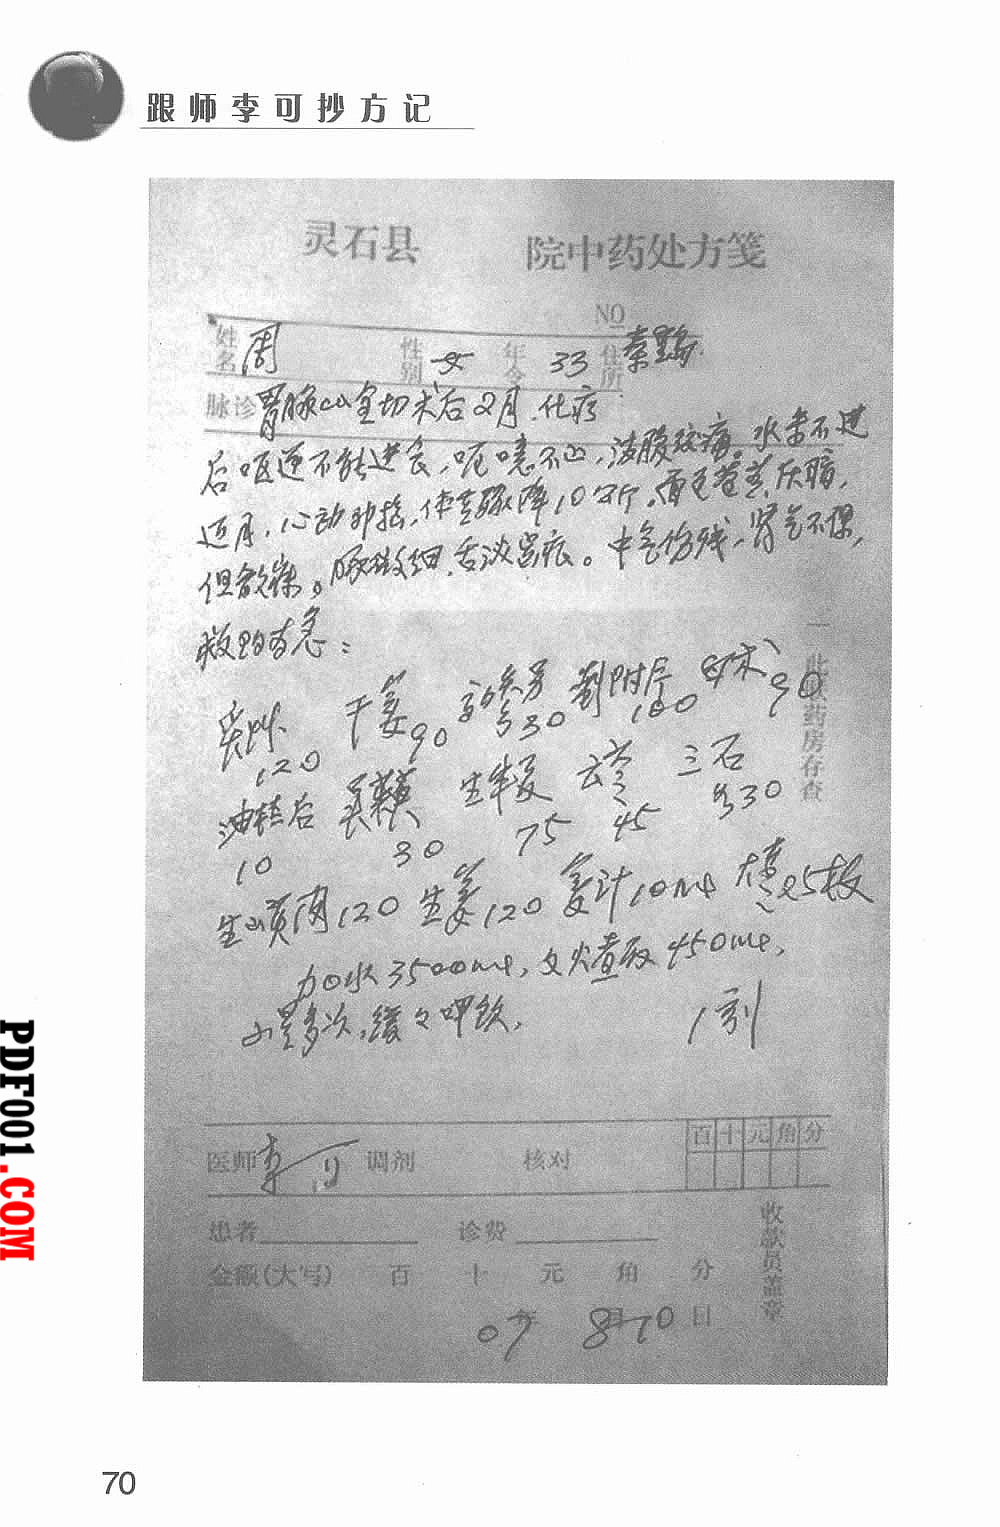 跟师李可抄方记
灵石县 院中药处方笺
NO
姓名 周 性别 女 年令 33 住所 秦
脉诊 胃腺ca全切术后2月.化疗
后呕逆不能进食,呃噫不止,满腹绞痛。水米不进
近月,心动神摇,体重骤降10公斤,面色苍黄灰暗,
但欲寐。脉微细,舌淡齿痕。中气伤残,肾气不保,
救阳为急:
炙草 干姜 高丽参 制附片 白术
120 90 30 100 90
油桂后 吴萸 生半夏 云苓 三石
10 30 75 45 各30
生山萸肉120 生姜120 姜汁10ml 大枣25枚
加水3500ml,文火煮取450ml,
小量多次,缓缓呷饮,
1剂
一 此联药房存查
百 十 元 角 分
医师 李可 调剂 核对
患者 诊费
收款员盖章
金额(大写) 百 十 元 角 分
07年 8月10日
70
PDF001.COM